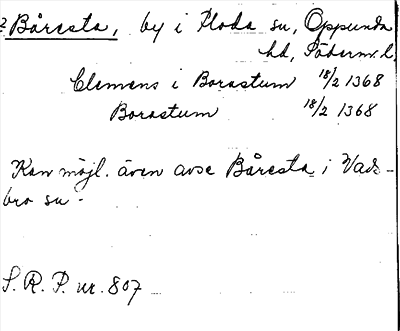 ? Båresta, by i Floda sn, Oppunda
hd, Söderm. l.
Clemens i Borastum 18/2 1368
Borastum 18/2 1368
Kan möjl. även avse Båresta i Vads-
bro sn.
S. R. P. nr. 807